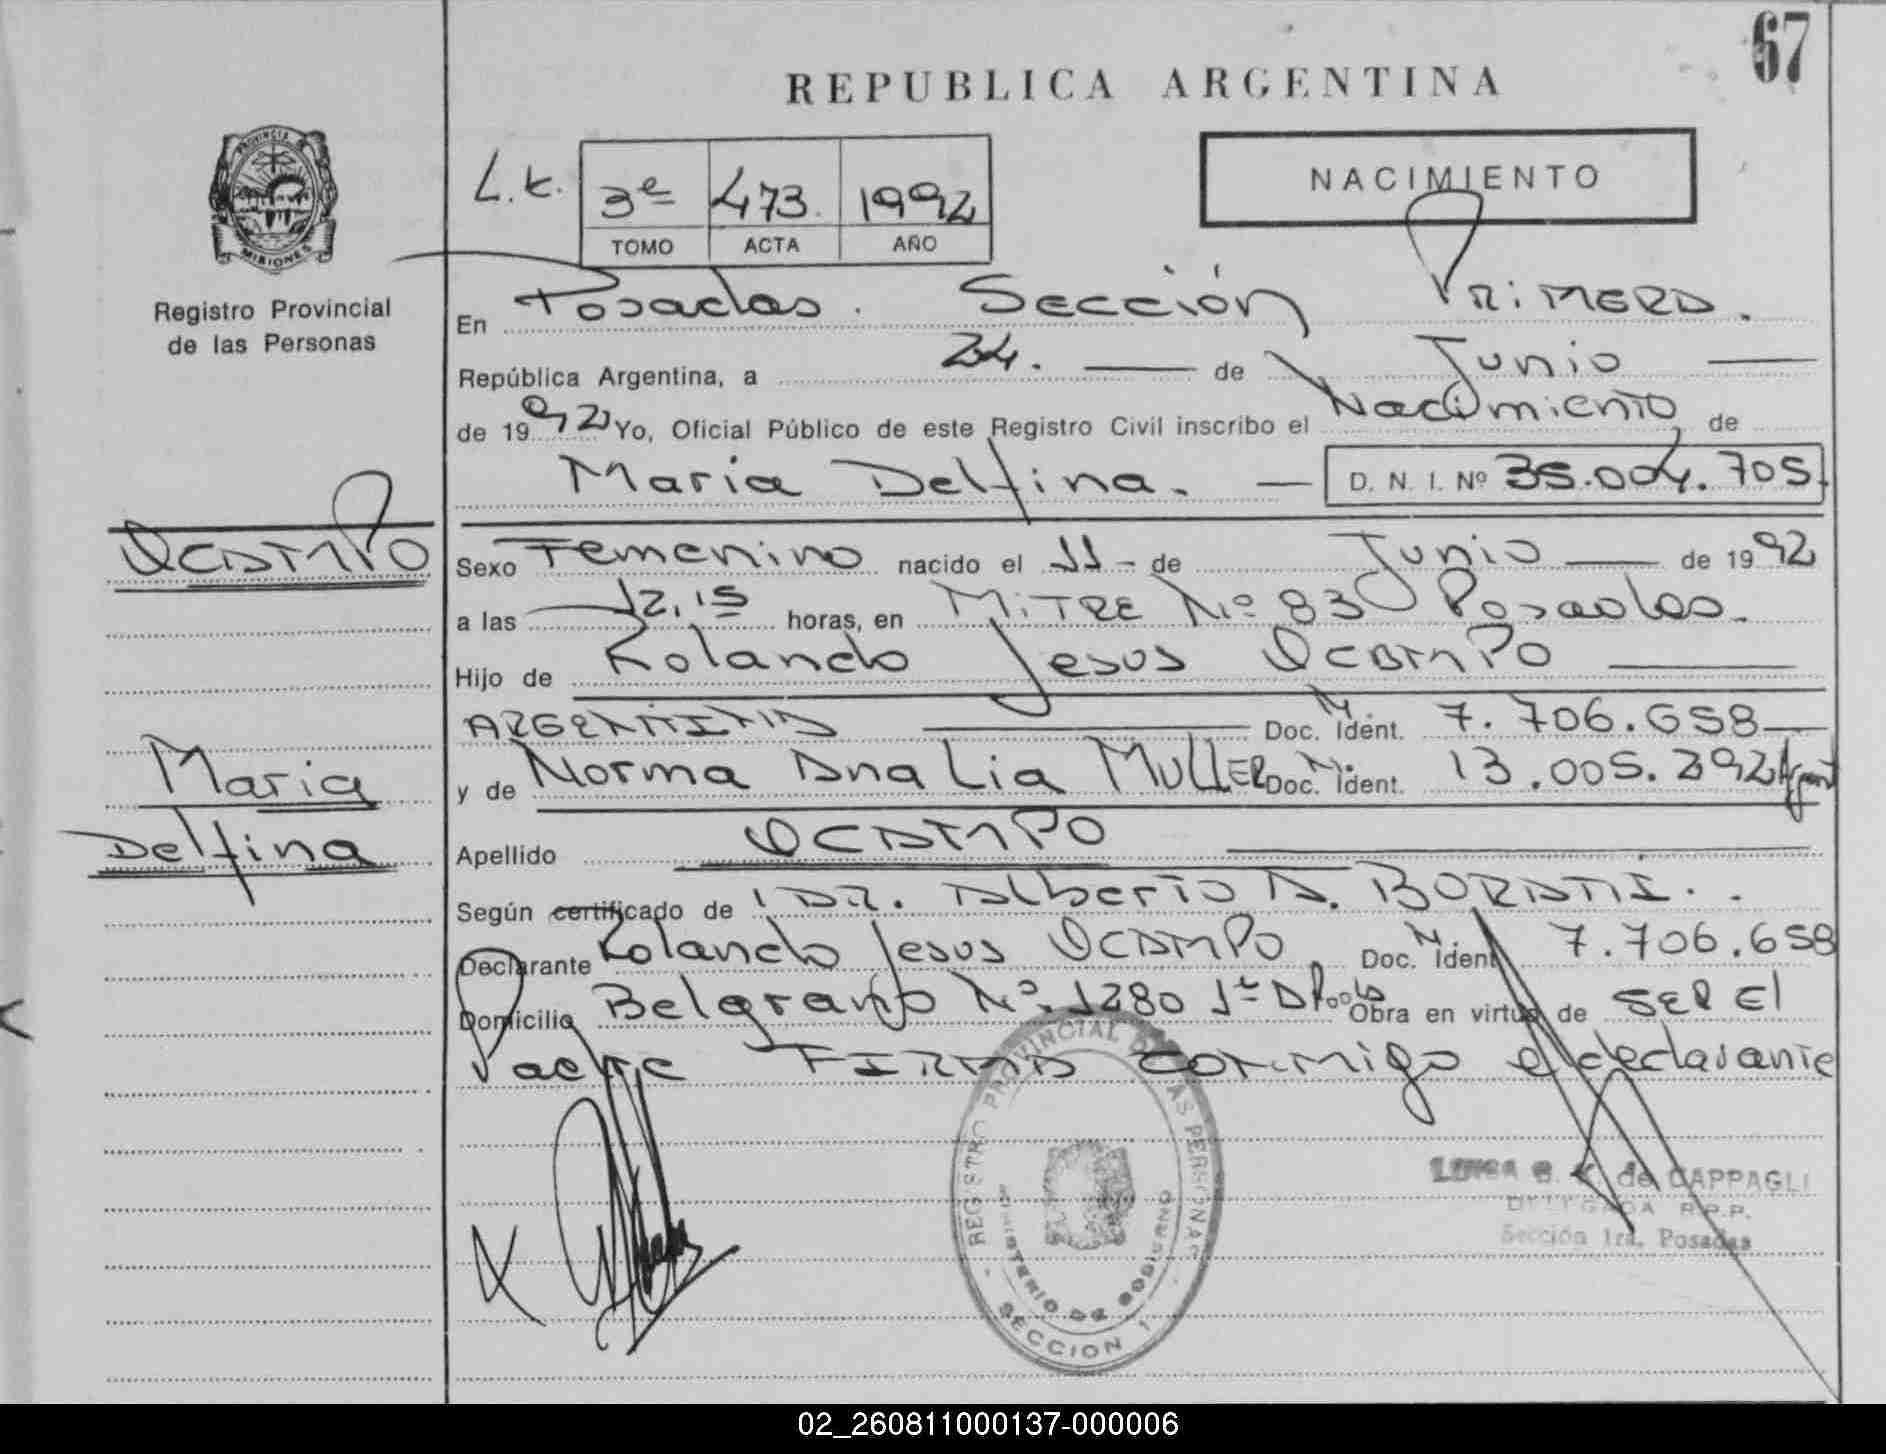 67
REPUBLICA ARGENTINA
PROVINCIA DE
MISIONES
Registro Provincial
de las Personas
L.k.
3e 473. 1992
TOMO ACTA AÑO
NACIMIENTO
En Posadas. Sección PRiMERA.
República Argentina, a 24. de Junio
de 1992 Yo, Oficial Público de este Registro Civil inscribo el Nacimiento de
Maria Delfina. D. N. I. Nº 35.004.705.
OCAMPO
Sexo Femenino nacido el 11 - de Junio de 1992
a las 12,15 horas, en MiTRE Nº 83 Posadas.
Hijo de Rolando Jesus OCAMPO
ARGENTINA Doc. Ident. 7.706.658
y de Norma Ana Lia MULLER Doc. Ident. 13.005.292 Argent
Maria
Delfina
Apellido OCAMPO
Según certificado de DR. Alberto A. BORATTI.
Declarante Rolando Jesus OCAMPO. Doc. Ident. 7.706.658
Domicilio Belgrano Nº. 1280 1º D Obra en virtud de SER El
Padre FIRMA conmigo el declarante
X
REGISTRO PROVINCIAL DE LAS PERSONAS
MINISTERIO DE GOBIERNO
SECCION 1
de CAPPAGLI
DELEGADA R.P.P.
Sección 1ra. Posadas
02_260811000137-000006